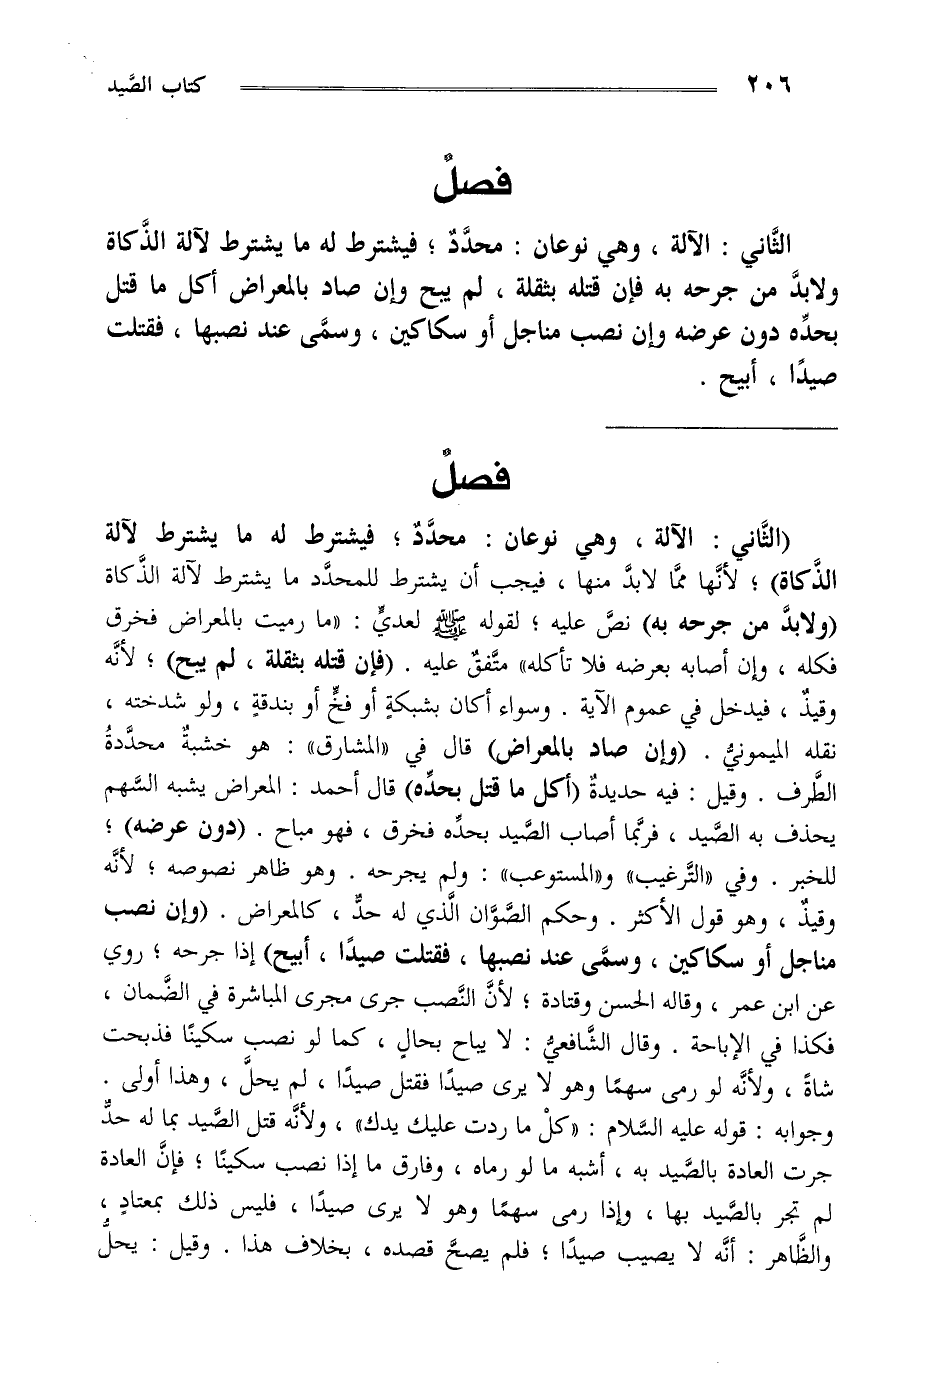 ٢٠٦ كتاب الصَّيد
فصلٌ
الثَّاني : الآلة ، وهي نوعان : محدَّدٌ ؛ فيشترط له ما يشترط لآلة الذَّكاة
ولابدَّ من جرحه به فإن قتله بثقلة ، لم يبح وإن صاد بالمعراض أكل ما قتل
بحدِّه دون عرضه وإن نصب مناجل أو سكاكين ، وسمَّى عند نصبها ، فقتلت
صيدًا ، أبيح .
فصلٌ
(الثَّاني : الآلة ، وهي نوعان : محدَّدٌ ؛ فيشترط له ما يشترط لآلة
الذَّكاة) ؛ لأنَّها ممَّا لابدَّ منها ، فيجب أن يشترط للمحدَّد ما يشترط لآلة الذَّكاة
(ولابدَّ من جرحه به) نصَّ عليه ؛ لقوله ﷺ لعديٍّ : «ما رميت بالمعراض فخرق
فكله ، وإن أصابه بعرضه فلا تأكله» متَّفقٌ عليه . (فإن قتله بثقلة ، لم يبح) ؛ لأنَّه
وقيذٌ ، فيدخل في عموم الآية . وسواء أكان بشبكةٍ أو فخٍّ أو بندقةٍ ، ولو شدخته ،
نقله الميمونيُّ . (وإن صاد بالمعراض) قال في «المشارق» : هو خشبةٌ محدَّدةُ
الطَّرف . وقيل : فيه حديدةٌ (أكل ما قتل بحدِّه) قال أحمد : المعراض يشبه السَّهم
يحذف به الصَّيد ، فربَّما أصاب الصَّيد بحدِّه فخرق ، فهو مباح . (دون عرضه) ؛
للخبر . وفي «التَّرغيب» و«المستوعب» : ولم يجرحه . وهو ظاهر نصوصه ؛ لأنَّه
وقيذٌ ، وهو قول الأكثر . وحكم الصَّوَّان الَّذي له حدٌّ ، كالمعراض . (وإن نصب
مناجل أو سكاكين ، وسمَّى عند نصبها ، فقتلت صيدًا ، أبيح) إذا جرحه ؛ روي
عن ابن عمر ، وقاله الحسن وقتادة ؛ لأنَّ النَّصب جرى مجرى المباشرة في الضَّمان ،
فكذا في الإباحة . وقال الشَّافعيُّ : لا يباح بحالٍ ، كما لو نصب سكينًا فذبحت
شاةً ، ولأنَّه لو رمى سهمًا وهو لا يرى صيدًا فقتل صيدًا ، لم يحلَّ ، وهذا أولى .
وجوابه : قوله عليه السَّلام : «كلْ ما ردت عليك يدك» ، ولأنَّه قتل الصَّيد بما له حدٌّ
جرت العادة بالصَّيد به ، أشبه ما لو رماه ، وفارق ما إذا نصب سكينًا ؛ فإنَّ العادة
لم تجر بالصَّيد بها ، وإذا رمى سهمًا وهو لا يرى صيدًا ، فليس ذلك بمعتادٍ ،
والظَّاهر : أنَّه لا يصيب صيدًا ؛ فلم يصحَّ قصده ، بخلاف هذا . وقيل : يحلُّ